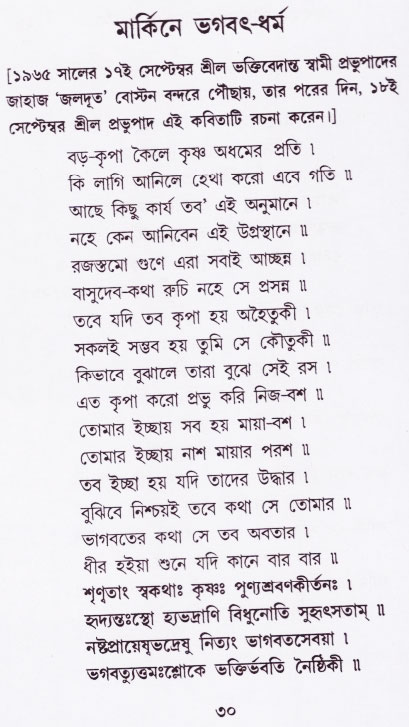 মার্কিনে ভগবৎ-ধর্ম
[১৯৬৫ সালের ১৭ই সেপ্টেম্বর শ্রীল ভক্তিবেদান্ত স্বামী প্রভুপাদের
জাহাজ ‘জলদূত’ বোস্টন বন্দরে পৌঁছায়, তার পরের দিন, ১৮ই
সেপ্টেম্বর শ্রীল প্রভুপাদ এই কবিতাটি রচনা করেন।]
বড়-কৃপা কৈলে কৃষ্ণ অধমের প্রতি ।
কি লাগি আনিলে হেথা করো এবে গতি ॥
আছে কিছু কার্য তব' এই অনুমানে ।
নহে কেন আনিবেন এই উগ্রস্থানে ॥
রজস্তমো গুণে এরা সবাই আচ্ছন্ন ।
বাসুদেব-কথা রুচি নহে সে প্রসন্ন ॥
তবে যদি তব কৃপা হয় অহৈতুকী ।
সকলই সম্ভব হয় তুমি সে কৌতুকী ॥
কিভাবে বুঝালে তারা বুঝে সেই রস ।
এত কৃপা করো প্রভু করি নিজ-বশ ॥
তোমার ইচ্ছায় সব হয় মায়া-বশ ।
তোমার ইচ্ছায় নাশ মায়ার পরশ ॥
তব ইচ্ছা হয় যদি তাদের উদ্ধার ।
বুঝিবে নিশ্চয়ই তবে কথা সে তোমার ॥
ভাগবতের কথা সে তব অবতার ।
ধীর হইয়া শুনে যদি কানে বার বার ॥
শৃণ্বতাং স্বকথাঃ কৃষ্ণঃ পুণ্যশ্রবণকীর্তনঃ ।
হৃদ্যন্তঃস্থো হ্যভদ্রাণি বিধুনোতি সুহৃৎসতাম্ ॥
নষ্টপ্রায়েষ্বভদ্রেষু নিত্যং ভাগবতসেবয়া ।
ভগবত্যুত্তমঃশ্লোকে ভক্তির্ভবতি নৈষ্ঠিকী ॥
৩০